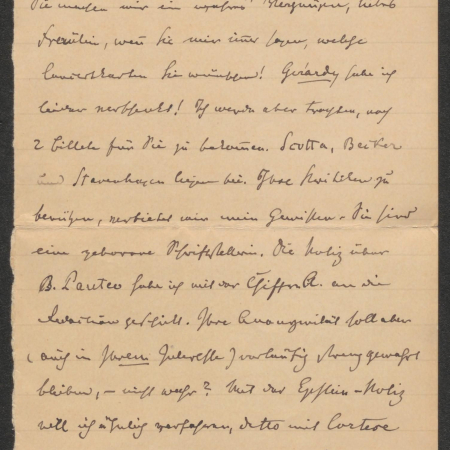 Sie machen mir ein wahres Vergnügen, liebes
Fräulein, wenn Sie mir immer sagen, welche
Concertkarten Sie wünschen! Gérardy habe ich
leider verschenkt! Ich werde aber trachten, noch
2 Billete für Sie zu bekommen. Scotta, Becker
und Stavenhagen liegen bei. Ihre Kritiken zu
benützen, verbietet mir mein Gewissen. Sie sind
eine geborene Schriftstellerin. Die Notiz über
B. habe ich mit der Chiffre A. an die
Redaction geschickt. Ihre Anonymität soll aber
(auch in Ihrem Interesse) vorläufig streng gewahrt
bleiben, – nicht wahr? Mit der Epstein-Notiz
will ich ähnlich verfahren, detto mit